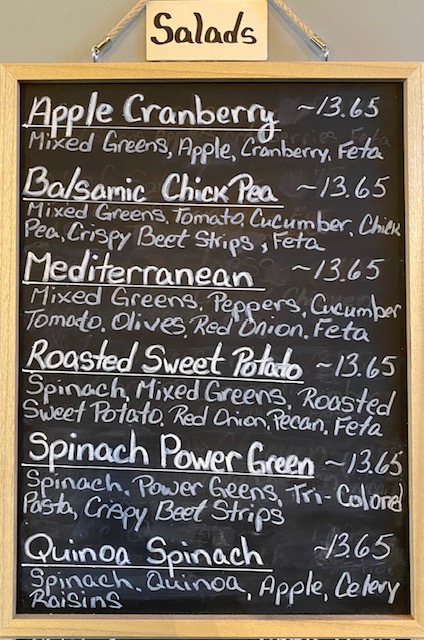 Salads
Apple Cranberry ~13.65
Mixed Greens, Apple, Cranberry, Feta
Balsamic Chick Pea ~13.65
Mixed Greens, Tomato, Cucumber, Chick
Pea, Crispy Beet Strips, Feta
Mediterranean ~13.65
Mixed Greens, Peppers, Cucumber
Tomato, Olives, Red Onion, Feta
Roasted Sweet Potato ~13.65
Spinach, Mixed Greens, Roasted
Sweet Potato, Red Onion, Pecan, Feta
Spinach Power Green ~13.65
Spinach, Power Geens, Tri-Colored
Pasta, Crispy Beet Strips
Quinoa Spinach ~13.65
Spinach, Quinoa, Apple, Celery
Raisins